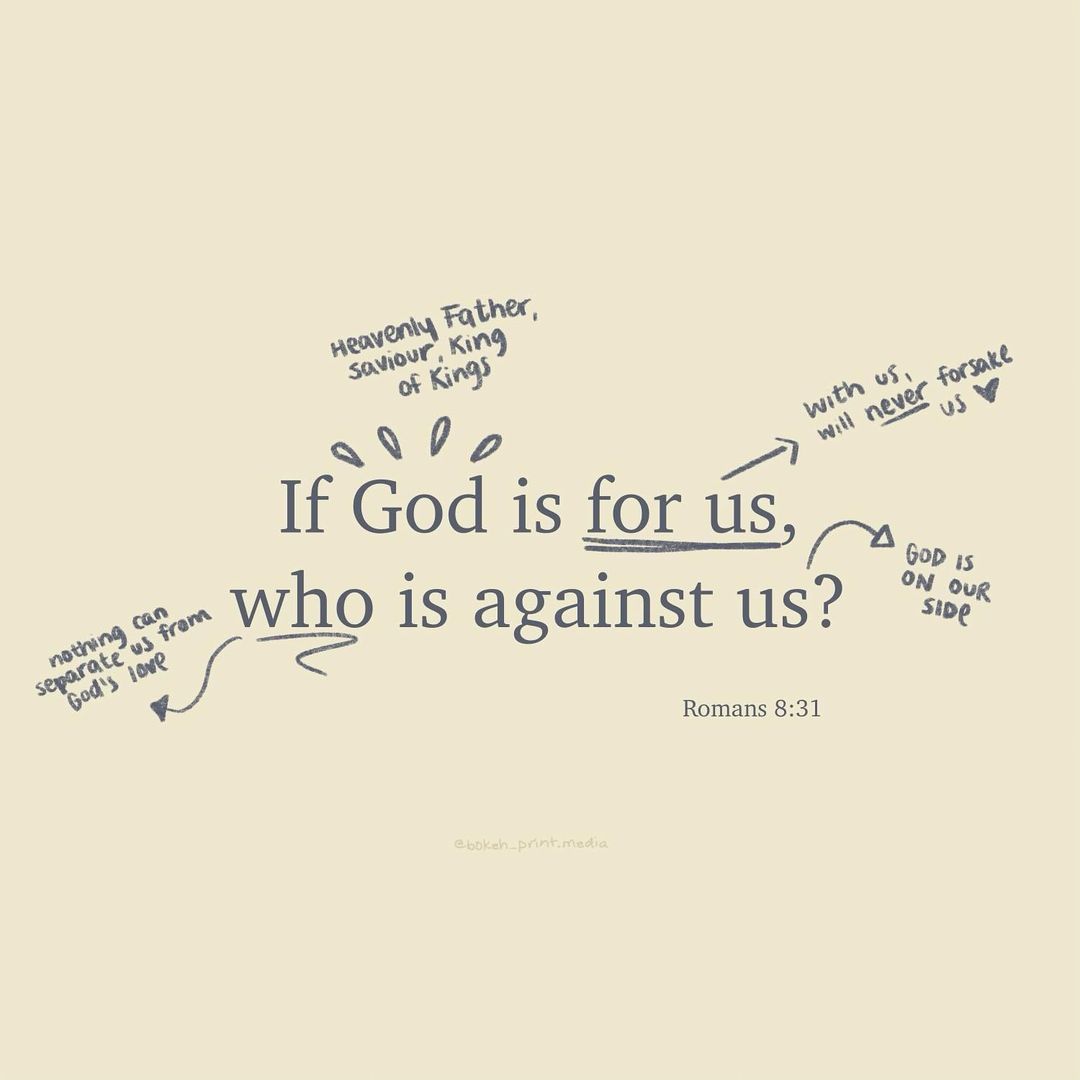 Heavenly Father,
saviour, King
of Kings
with us,
will never forsake
us
If God is for us,
who is against us?
GOD IS
ON OUR
SIDE
nothing can
separate us from
God's love
Romans 8:31
@bokeh_print.media